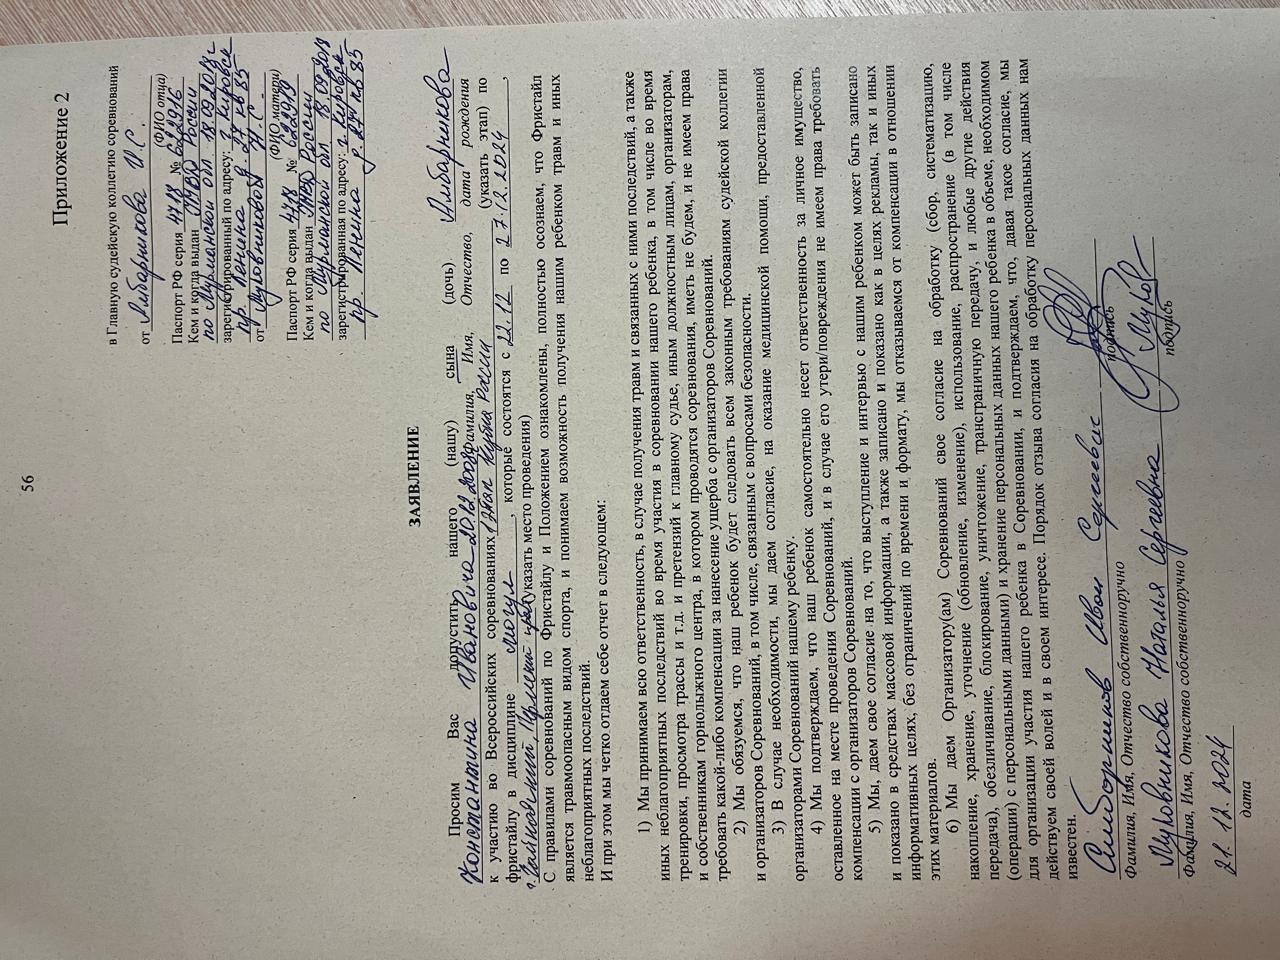 56
Приложение 2
в Главную судейскую коллегию соревнований
от Амбарникова И.С.
(ФИО отца)
Паспорт РФ серия 4718 №
Кем и когда выдан УМВД России
по Мурманской обл 18.09.2018г
зарегистрированный по адресу: г. Кировск
пр. Ленина д. 27 кв 85
от Муковниковой Н С.
(ФИО матери)
Паспорт РФ серия 4718 № 622919
Кем и когда выдан УМВД России
по Мурманской обл 18.09.2018
зарегистрированная по адресу: г. Кировск
пр. Ленина д. 27 кв 85
ЗАЯВЛЕНИЕ
Просим Вас допустить нашего (нашу) сына (дочь) Амбарникова
Константина Ивановича фамилия, Имя, Отчество, дата рождения
к участию во Всероссийских соревнованиях 1 этап Кубка России (указать этап) по
фристайлу в дисциплине могул, которые состоятся с 22.12 по 27.12.2024,
г. (указать место проведения)
С правилами соревнований по Фристайлу и Положением ознакомлены, полностью осознаем, что Фристайл
является травмоопасным видом спорта, и понимаем возможность получения нашим ребенком травм и иных
неблагоприятных последствий.
И при этом мы четко отдаем себе отчет в следующем:
1) Мы принимаем всю ответственность, в случае получения травм и связанных с ними последствий, а также
иных неблагоприятных последствий во время участия в соревновании нашего ребенка, в том числе во время
тренировки, просмотра трассы и т.д. и претензий к главному судье, иным должностным лицам, организаторам,
и собственникам горнолыжного центра, в котором проводятся соревнования, иметь не будем, и не имеем права
требовать какой-либо компенсации за нанесение ущерба с организаторов Соревнований.
2) Мы обязуемся, что наш ребенок будет следовать всем законным требованиям судейской коллегии
и организаторов Соревнований, в том числе, связанным с вопросами безопасности.
3) В случае необходимости, мы даем согласие, на оказание медицинской помощи, предоставленной
организаторами Соревнований нашему ребенку.
4) Мы подтверждаем, что наш ребенок самостоятельно несет ответственность за личное имущество,
оставленное на месте проведения Соревнований, и в случае его утери/повреждения не имеем права требовать
компенсации с организаторов Соревнований.
5) Мы, даем свое согласие на то, что выступление и интервью с нашим ребенком может быть записано
и показано в средствах массовой информации, а также записано и показано как в целях рекламы, так и иных
информативных целях, без ограничений по времени и формату, мы отказываемся от компенсации в отношении
этих материалов.
6) Мы даем Организатору(ам) Соревнований свое согласие на обработку (сбор, систематизацию,
накопление, хранение, уточнение (обновление, изменение), использование, распространение (в том числе
передача), обезличивание, блокирование, уничтожение, трансграничную передачу, и любые другие действия
(операции) с персональными данными) и хранение персональных данных нашего ребенка в объеме, необходимом
для организации участия нашего ребенка в Соревновании, и подтверждаем, что, давая такое согласие, мы
действуем своей волей и в своем интересе. Порядок отзыва согласия на обработку персональных данных нам
известен.
Иван Сергеевич
Фамилия, Имя, Отчество собственноручно подпись
Муковникова Наталья Сергеевна
Фамилия, Имя, Отчество собственноручно подпись
21.12.2024
дата